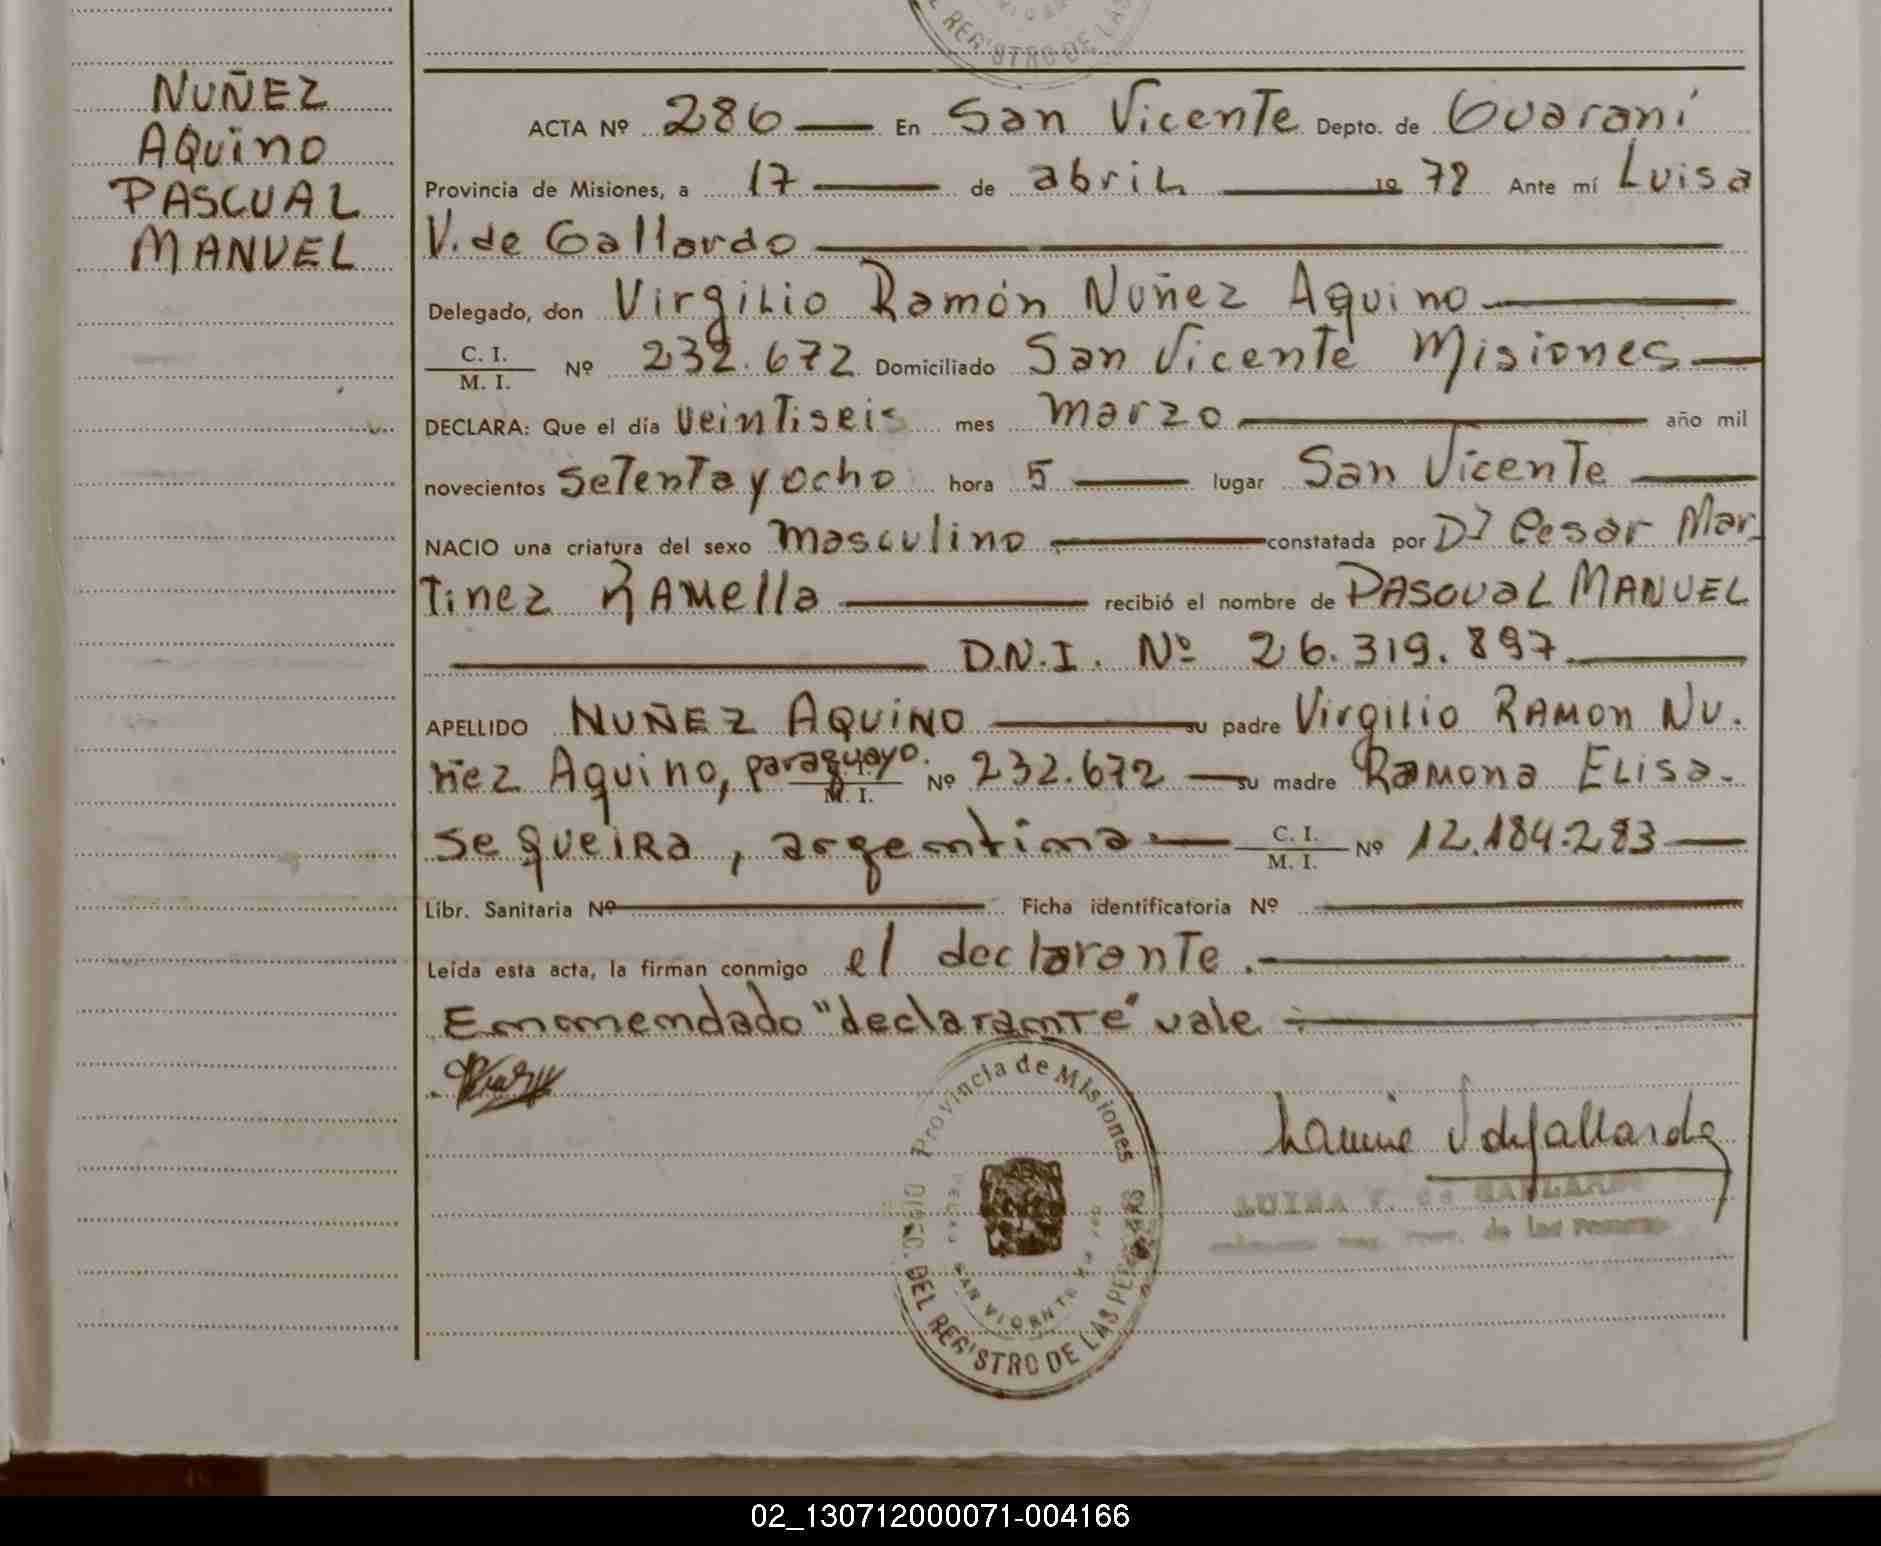 EL REGISTRO DE LAS
NUÑEZ
AQuino
PASCUAL
MANUEL
ACTA Nº 286 — En San Vicente Depto. de Guaraní
Provincia de Misiones, a 17 — de abril — 19 78 Ante mí Luisa
V. de Gallardo —
Delegado, don Virgilio Ramón Nuñez Aquino —
C. I.
M. I. Nº 232.672 Domiciliado San Vicente Misiones —
DECLARA: Que el día veintiseis mes marzo — año mil
novecientos setenta y ocho hora 5 — lugar San Vicente —
NACIO una criatura del sexo masculino — constatada por Dr Cesar Mar
tinez RAMella — recibió el nombre de PASCUAL MANUEL
— D.N.I. Nº 26.319.897 —
APELLIDO NUÑEZ AQUINO — su padre Virgilio RAMON NU.
ñez Aquino, paraguayo. M. I. Nº 232.672 — su madre Ramona ELisa
sequeiRa, argentina — C. I.
M. I. Nº 12.184.283 —
Libr. Sanitaria Nº — Ficha identificatoria Nº —
Leída esta acta, la firman conmigo el declarante. —
Enmendado "declarante" vale —
Provincia de Misiones
DIREC. DEL REGISTRO DE LAS PERSONAS
SAN VICENTE
LUISA V. de GALLARDO
de las Personas
02_130712000071-004166